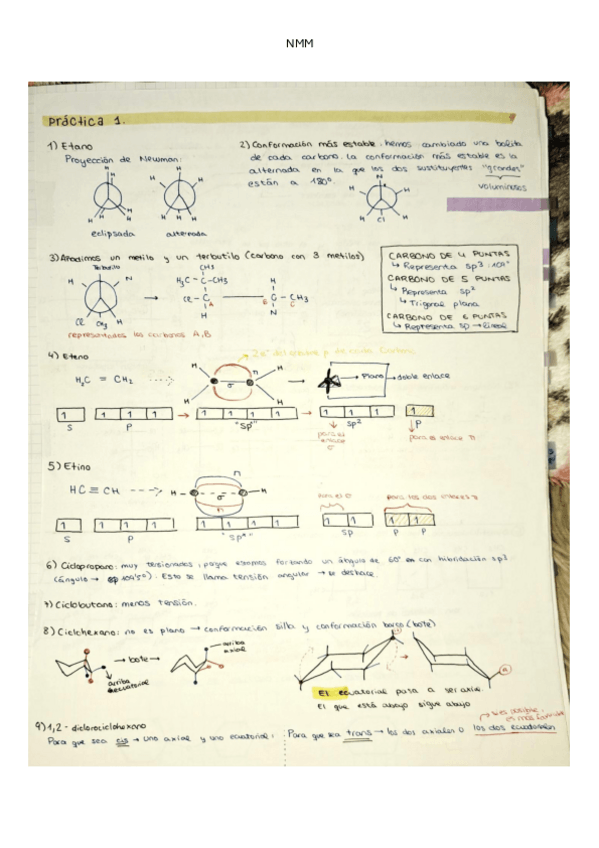 NMM
práctica 1.
1) Etano
Proyección de Newman:
H
H
H
H
H
H
eclipsada
H
H
H
H
H
H
alternada
2) Conformación más estable: hemos cambiado una bolita
de cada carbono. La conformación más estable es la
alternada en la que los dos sustituyentes "grandes"
están a 180º.
voluminosos
N
H
H
H
H
Cl
3) Añadimos un metilo y un terbutilo (carbono con 3 metilos)
Terbutilo
H
N
Cl
CH3
H
CH3
H3C - C - CH3
Cl - C
A
H
H
B
C - CH3
C
N
representados los carbonos A, B
CARBONO DE 4 PUNTAS
↳ Representa sp3: 109º
CARBONO DE 5 PUNTAS
↳ Representa sp2
↳ Trigonal plana
CARBONO DE 6 PUNTAS
↳ Representa sp → lineal
4) Eteno
2e- del orbital p de cada carbono
H2C = CH2
H
H
σ
π
H
H
Plano → doble enlace
1
1 1 1
1 1 1 1
1 1 1
1
S
P
"sp"
sp2
P
para el
enlace
σ
para el enlace π
5) Etino
HC ≡ CH
H
π
σ
π
H
1
1 1 1
1 1 1 1
1 1
1 1
S
P
SP
P
P
para los dos enlaces π
6) Ciclopropano: muy tensionados, porque estamos forzando un ángulo de 60º en con hibridación sp3
(ángulo → 109'5º). Esto se llama tensión angular → se deshace.
7) Ciclobutano: menos tensión.
8) Ciclohexano: no es plano → conformación silla y conformación barco (bote)
→ bote →
arriba
ecuatorial
arriba
axial
El ecuatorial pasa a ser axial.
El que está abajo sigue abajo
9) 1,2 - diclorociclohexano
Para que sea cis → uno axial y uno ecuatorial.
Para que sea trans → los dos axiales o los dos ecuatoriales